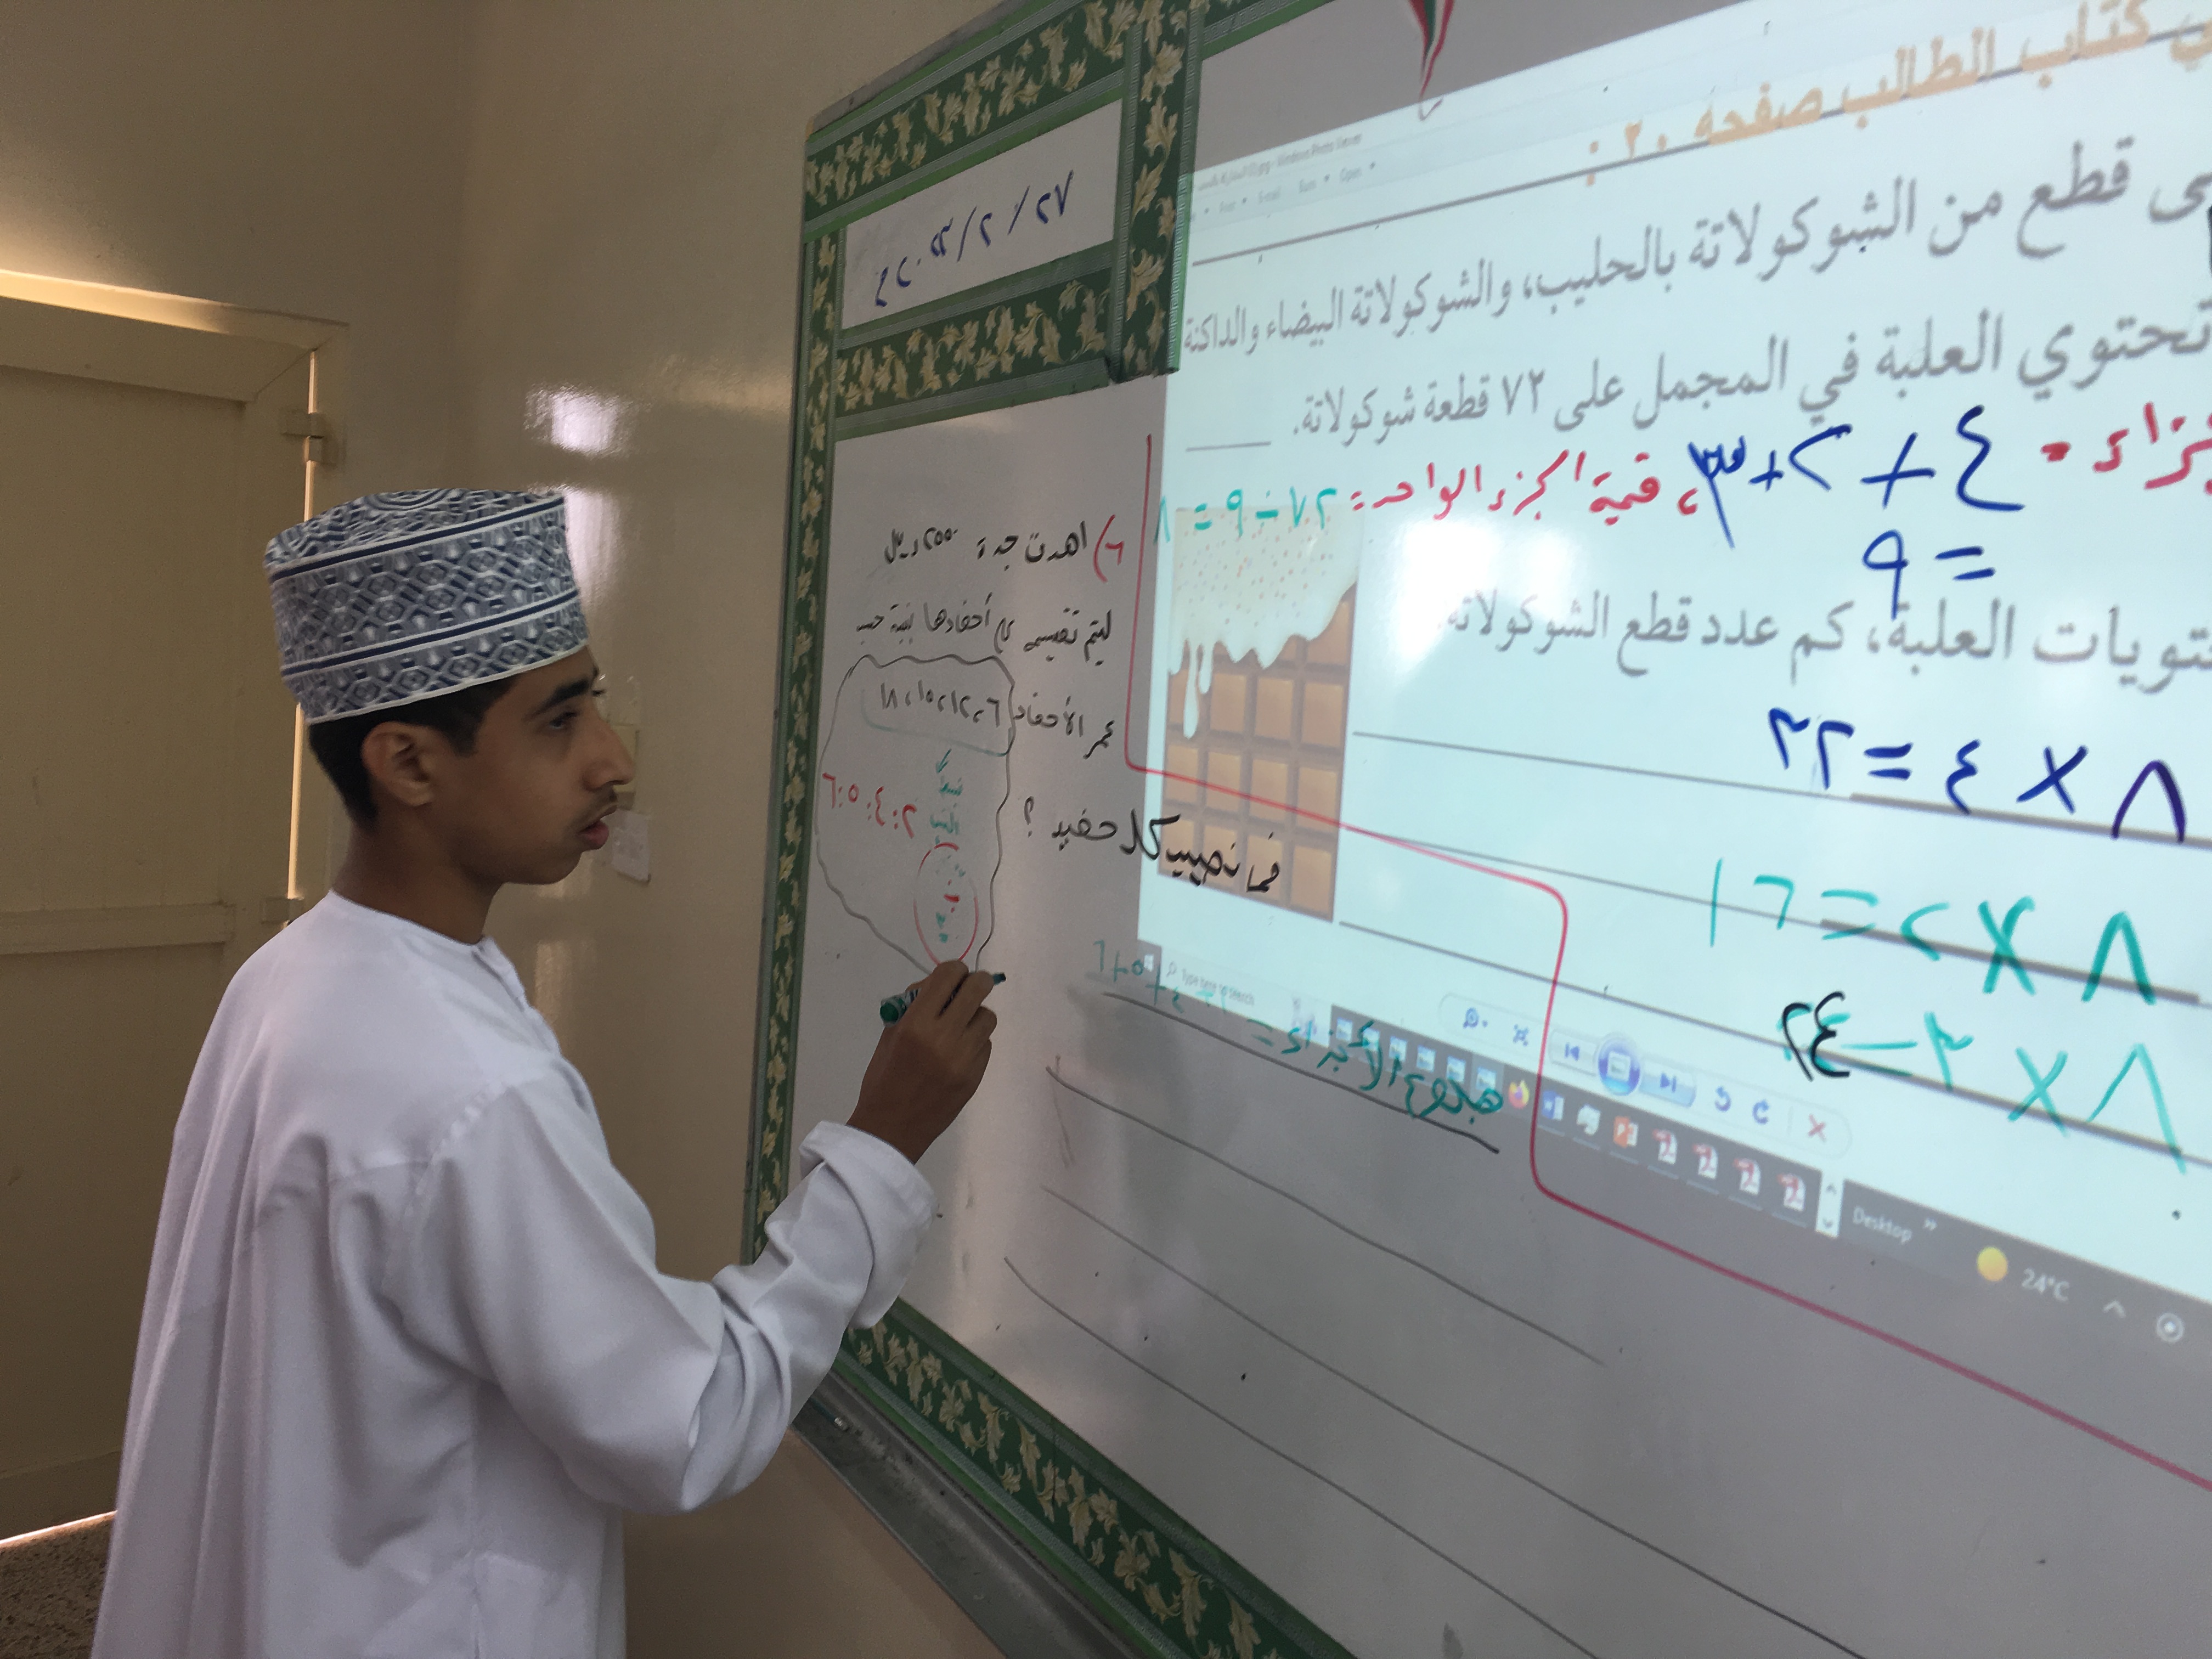 كتاب الطالب صفحة ٢٠ :
قطع من الشوكولاتة بالحليب، والشوكولاتة البيضاء والداكنة
تحتوي العلبة في المجمل على ٧٢ قطعة شوكولاتة.
٤ + ٢ + ٣ ، قيمة الجزء الواحد = ٧٢ ÷ ٩ = ٨
= ٩
العلبة، كم عدد قطع الشوكولاتة
٨ × ٤ = ٣٢
٨ × ٢ = ١٦
٨ × ٣ = ٢٤
٢) اهدت جدة ٢٥٥٠ ريال
ليتم تقسيمه على أحفادها بنسبة حسب
عمر الأحفاد ٦، ١٢، ١٥، ١٨
٢:٤:٥:٦
فما نصيب كل حفيد ؟
مجموع الأجزاء =
Windows Photo Viewer
Print
E-mail
Burn
Open
Type here to search
Desktop
24°C